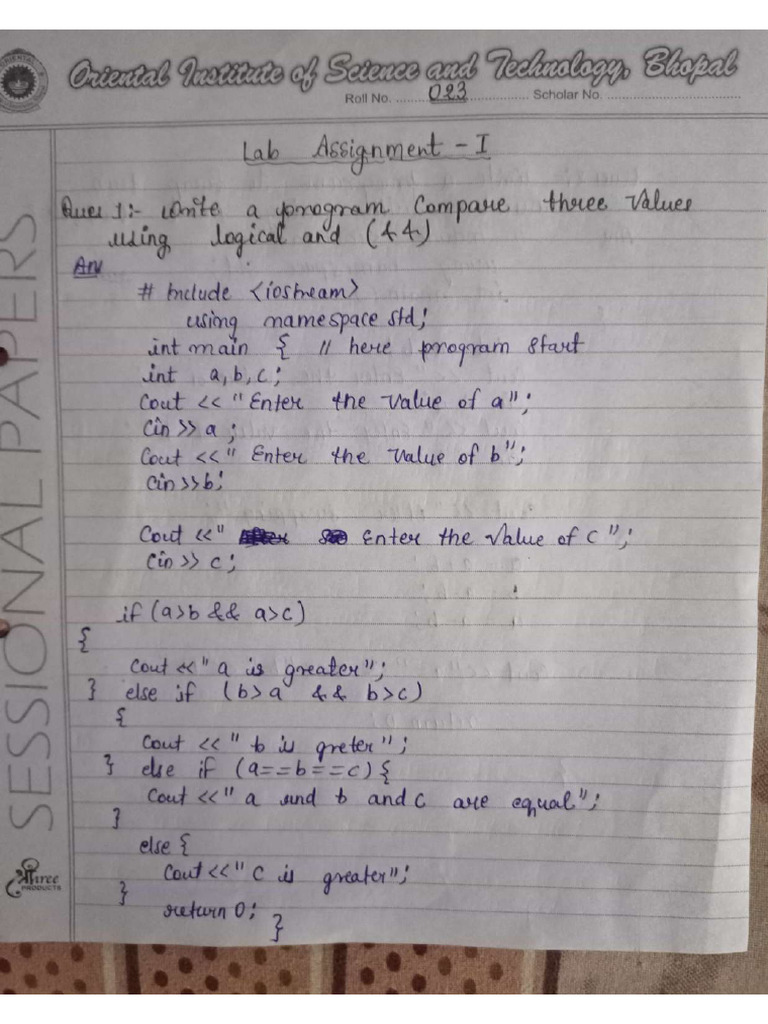 Oriental Institute of Science and Technology, Bhopal
Roll No. .........023................. Scholar No. ........................................
Lab Assignment - I
Ques 1:- Write a program Compare three Values
using logical and (&&)
An
# Include <iostream>
using namespace std;
int main { // here program start
int a, b, c;
Cout << "Enter the value of a";
Cin >> a;
Cout << "Enter the value of b";
Cin >> b;
Cout << " Enter the Value of c";
Cin >> c;
if (a>b && a>c)
{
Cout << "a is greater";
} else if (b>a && b>c)
{
Cout << "b is greter";
} else if (a==b==c) {
Cout << "a and b and c are equal";
}
else {
Cout << "c is greater";
}
return 0;
}
SESSIONAL PAPERS
श्री Shree
PRODUCTS